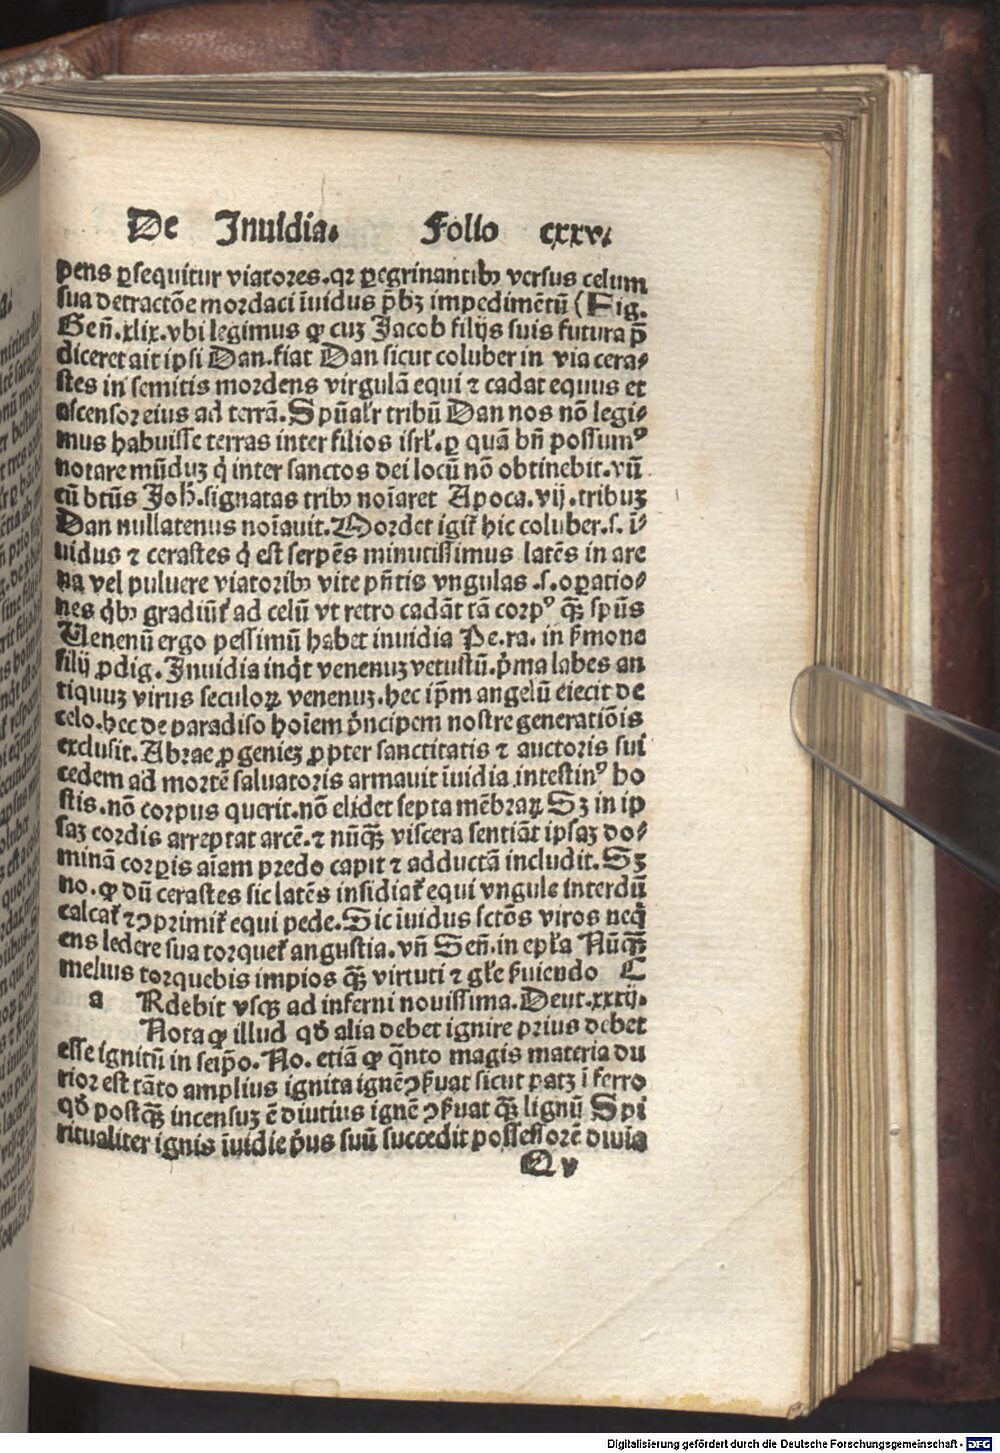 De Inuidia. Folio cxxv.
pens ꝑsequitur viatores.qꝛ ꝑegrinantibꝰ versus celum
sua detractōe mordaci īuidus p̄bꝫ impedimētū (Fig.
Geñ.xlix.vbi legimus ꝙ cuꝫ Jacob filijs suis futura p̄
diceret ait ipsi Dan.fiat Dan sicut coluber in via cera⸗
stes in semitis mordens virgulā equi ⁊ cadat equus et
ascensor eius ad terrā.Spūalr̄ tribū Dan nos nō legi⸗
mus habuisse terras inter filios isrł.ꝑ quā bñ possumꝰ
notare mūduꝫ q̇ inter sanctos dei locū nō obtinebit.vñ
cū btūs Joh̄.signatas tribꝰ noīaret Apoca.vij.tribuꝫ
Dan nullatenus noīauit.Mordet igit̄ hic coluber.s.ī⸗
uidus ⁊ cerastes q̇ est serpēs minutissimus latēs in are
na vel puluere viatoribꝰ vite pñtis vngulas .s.oꝑatio⸗
nes q̇bꝰ gradiūt̄ ad celū vt retro cadāt tā corpꝰ qꝫ̄ spūs
Uenenū ergo pessimū habet inuidia Pe.ra. in ẜmone
filij ꝓdig.Inuidia inq̇t venenuꝫ vetustū.p̄ma labes an
tiquuꝫ virus seculoꝝ venenuꝫ.hec ip̄m angelū eiecit de
celo.hec de paradiso hoīem p̄ncipem nostre generatiōis
exclusit.Abrae ꝓgenieꝫ ꝓpter sanctitatis ⁊ auctoris sui
cedem ad mortē saluatoris armauit īuidia intestinꝰ ho
stis.nō corpus querit.nō elidet septa mēbraꝝ Sꝫ in ip
saꝫ cordis arreptat arcē.⁊ nūqꝫ̄ viscera sentiāt ipsaꝫ do⸗
minā corꝑis aīam predo capit ⁊ adductā includit.Sꝫ
no.ꝙ dū cerastes sic latēs insidiat̄ equi vngule interdū
calcat̄ ⁊ ↄprimit̄ equi pede.Sic īuidus sctōs viros neq̇
ens ledere sua torquet̄ angustia.vñ Señ.in epła Nūqꝫ̄
melius torquebis impios qꝫ̄ virtuti ⁊ głe ẜuiendo C
a Rdebit vsqꝫ ad inferni nouissima.Deut.xxxij.
Nota ꝙ illud qđ alia debet ignire prius debet
esse ignitū in seip̄o.No. etiā ꝙ q̄nto magis materia du
rior est tāto amplius ignita ignē ↄẜuat sicut patꝫ ī ferro
qđ postqꝫ̄ incensuꝫ ē diutius ignē ↄẜuat qꝫ̄ lignū Spi
ritualiter ignis īuidie p̄us suū succedit possessorē diuia
Q v
Digitalisierung gefördert durch die Deutsche Forschungsgemeinschaft - DFG